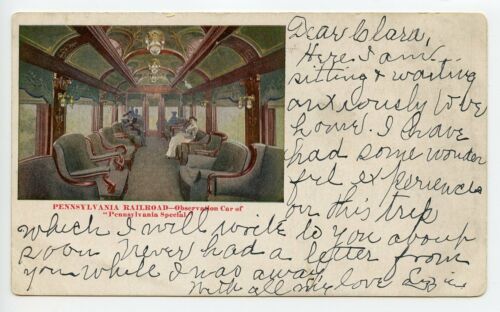 Dear Clara,
Here I am
sitting & waiting
anxiously to be
home. I have
had some wonder
ful experiences
on this trip
which I will write to you about
soon never had a letter from
you while I was away
With all my love
PENNSYLVANIA RAILROAD—Observation Car of
"Pennsylvania Special"